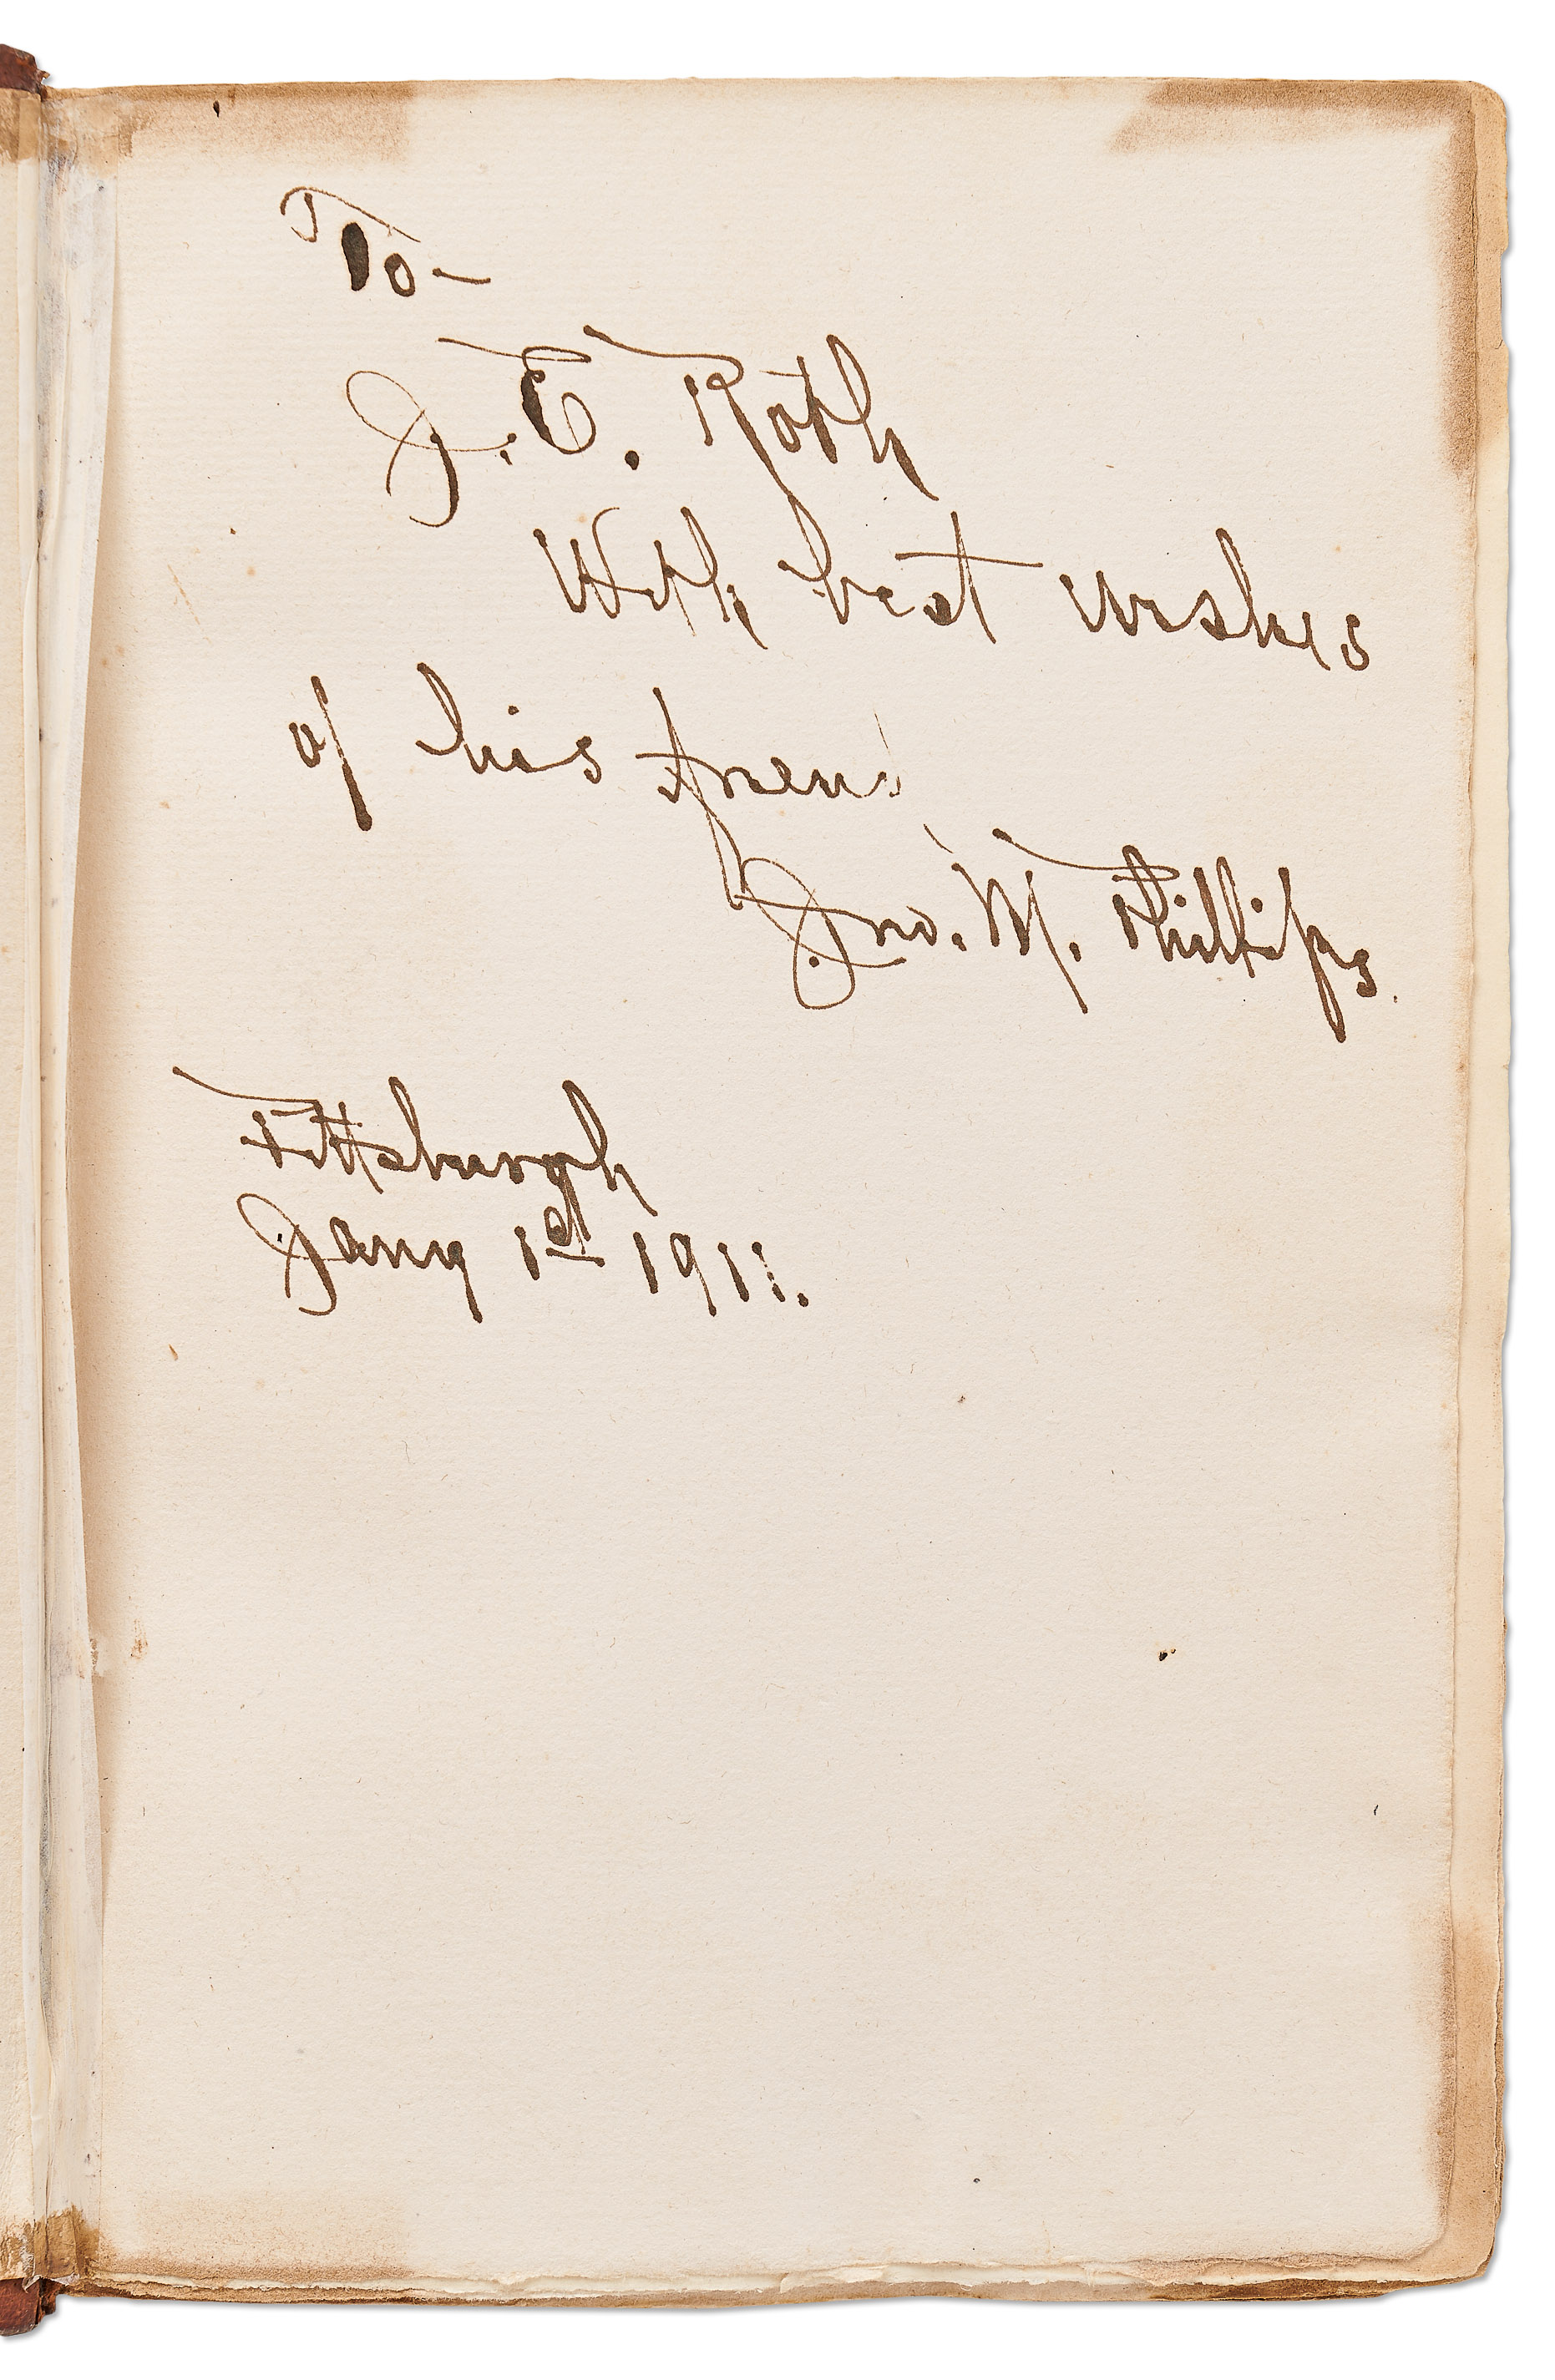 To-
J. E. Roth
With best wishes
of his friend
Jno. M. Phillips.
Pittsburgh
Jany 1st 1911.